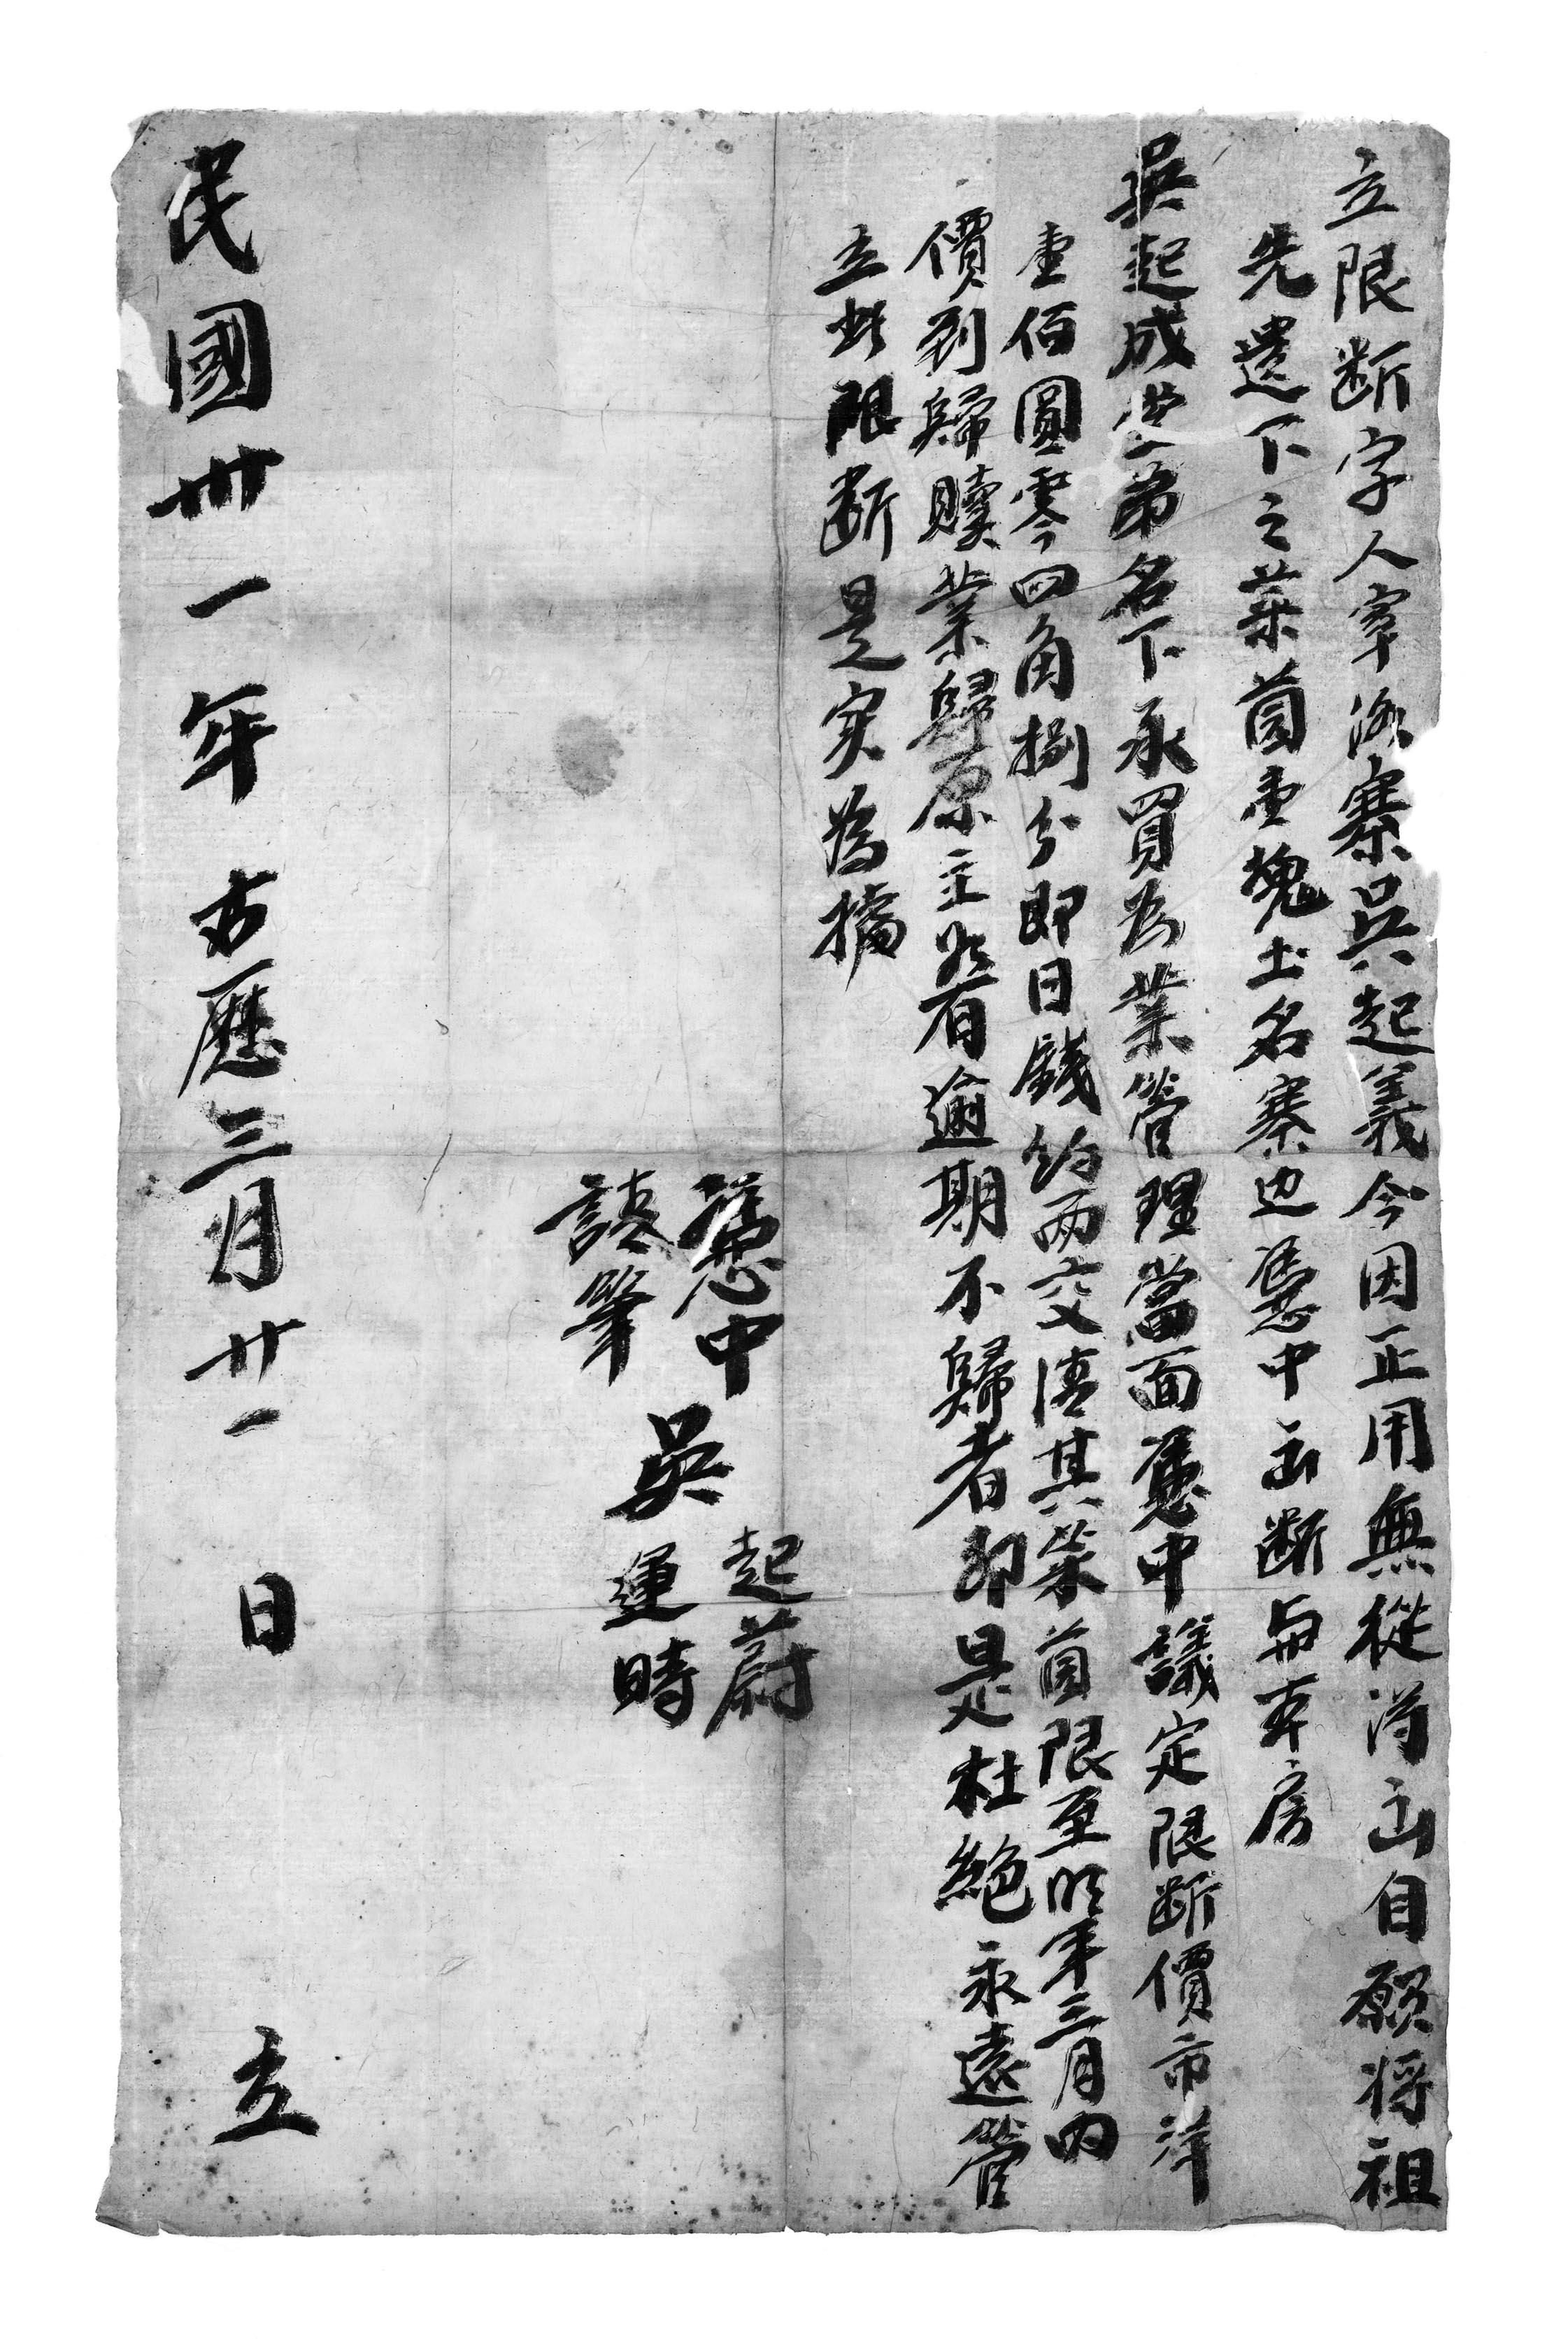 立限断字人宰河寨吳起義今因正用無從淂出自願将祖
先遺下之菜园壹塊土名寨边憑中出断与本房
吳起成堂弟名下承買为業管理當面憑中議定限断價市洋
壹佰圓零四角捌分即日錢約両交清其菜园限至明年三月内
價到歸贖業歸原主若有逾期不歸者即是杜絶永遠管
立此限断是实為據
憑中 吳起蔚
請筆 吳運時
民國卅一年古歷三月廿一日立